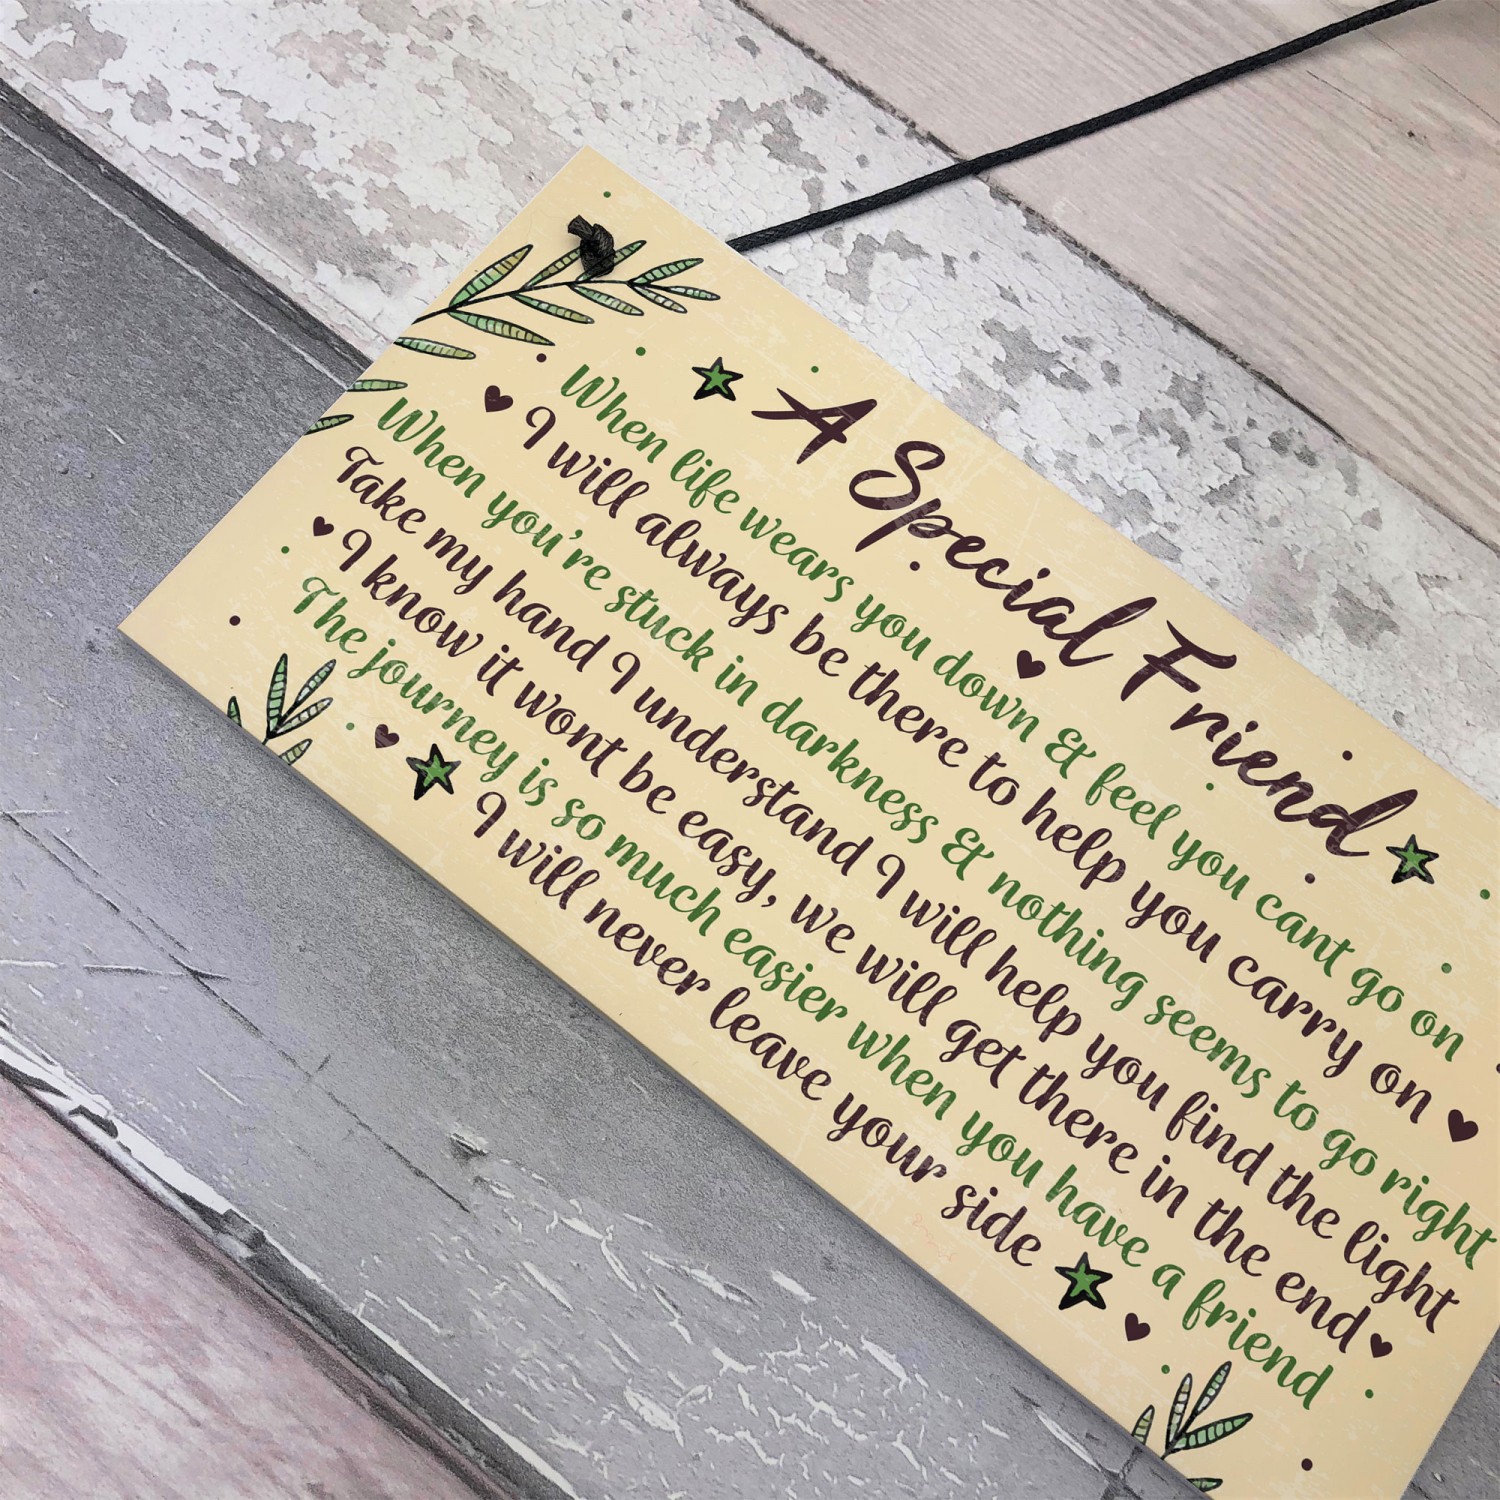 A Special Friend
When life wears you down & feel you cant go on
I will always be there to help you carry on
When you're stuck in darkness & nothing seems to go right
Take my hand I understand I will help you find the light
I know it wont be easy, we will get there in the end
The journey is so much easier when you have a friend
I will never leave your side